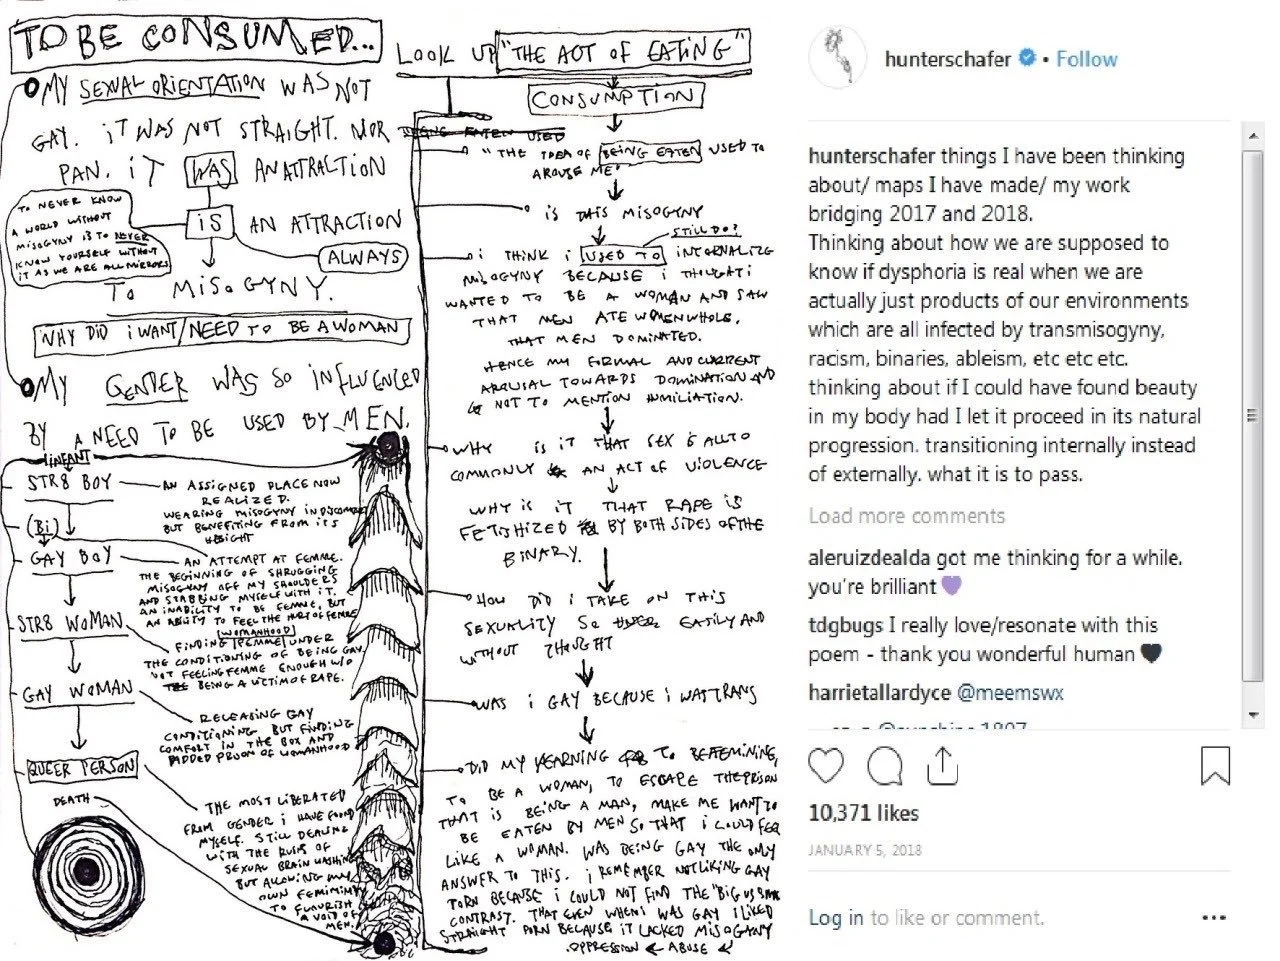 TO BE CONSUMED...
MY SEXUAL ORIENTATION WAS NOT
GAY. IT WAS NOT STRAIGHT. NOR
PAN. IT WAS AN ATTRACTION
IS AN ATTRACTION
ALWAYS
TO MISOGYNY.
TO NEVER KNOW
A WORLD WITHOUT
MISOGYNY IS TO NEVER
KNOW YOURSELF WITHOUT
IT AS WE ARE ALL MIRRORS
WHY DID I WANT/NEED TO BE A WOMAN
MY GENDER WAS SO INFLUENCED
BY A NEED TO BE USED BY MEN.
INFANT
STR8 BOY
AN ASSIGNED PLACE NOW
REALIZED.
WEARING MISOGYNY IN DISCOMFORT
BUT BENEFITING FROM ITS
WEIGHT
(Bi)
GAY BOY
AN ATTEMPT AT FEMME.
THE BEGINNING OF SHRUGGING
MISOGYNY OFF MY SHOULDERS
AND STABBING MYSELF WITH IT.
AN INABILITY TO BE FEMME, BUT
AN ABILITY TO FEEL THE HURT OF FEMME
STR8 WOMAN
WOMANHOOD
FINDING FEMME UNDER
THE CONDITIONING OF BEING GAY
NOT FEELING FEMME ENOUGH W/O
THE BEING A VICTIM OF RAPE.
GAY WOMAN
RELEASING GAY
CONDITIONING BUT FINDING
COMFORT IN THE BOX AND
PADDED PROOM OF WOMANHOOD
QUEER PERSON
THE MOST LIBERATED
FROM GENDER I HAVE FOUND
MYSELF. STILL DEALING
WITH THE RUINS OF
SEXUAL BRAIN WASHING
BUT ALLOWING MY
OWN FEMININITY
TO FLOURISH
A VOID OF
MEN.
DEATH
LOOK UP "THE ACT OF EATING"
CONSUMPTION
BEING EATEN USED
"THE IDEA OF BEING EATEN USED TO
AROUSE ME"
IS THIS MISOGYNY
STILL DO?
I THINK I USED TO INTERNALIZE
MISOGYNY BECAUSE I THOUGHT I
WANTED TO BE A WOMAN AND SAW
THAT MEN ATE WOMEN WHOLE.
THAT MEN DOMINATED.
HENCE MY FORMAL AND CURRENT
AROUSAL TOWARDS DOMINATION AND
NOT TO MENTION HUMILIATION.
WHY IS IT THAT SEX IS ALL TO
COMMONLY AN ACT OF VIOLENCE
WHY IS IT THAT RAPE IS
FETISHIZED BY BOTH SIDES OF THE
BINARY.
HOW DID I TAKE ON THIS
SEXUALITY SO EASILY AND
WITHOUT THOUGHT
WAS I GAY BECAUSE I WAS TRANS
DID MY YEARNING TO BE FEMININE,
TO BE A WOMAN, TO ESCAPE THE PRISON
THAT IS BEING A MAN, MAKE ME WANT TO
BE EATEN BY MEN SO THAT I COULD FEEL
LIKE A WOMAN. WAS BEING GAY THE ONLY
ANSWER TO THIS. I REMEMBER NOT LIKING GAY
PORN BECAUSE I COULD NOT FIND THE "BIG VS SMALL"
CONTRAST. THAT EVEN WHEN I WAS GAY I LIKED
STRAIGHT PORN BECAUSE IT LACKED MISOGYNY
OPPRESSION ABUSE
hunterschafer • Follow
hunterschafer things I have been thinking
about/ maps I have made/ my work
bridging 2017 and 2018.
Thinking about how we are supposed to
know if dysphoria is real when we are
actually just products of our environments
which are all infected by transmisogyny,
racism, binaries, ableism, etc etc etc.
thinking about if I could have found beauty
in my body had I let it proceed in its natural
progression. transitioning internally instead
of externally. what it is to pass.
Load more comments
aleruizdealda got me thinking for a while.
you're brilliant💜
tdgbugs I really love/resonate with this
poem - thank you wonderful human🖤
harrietallardyce @meemswx
10,371 likes
JANUARY 5, 2018
Log in to like or comment.